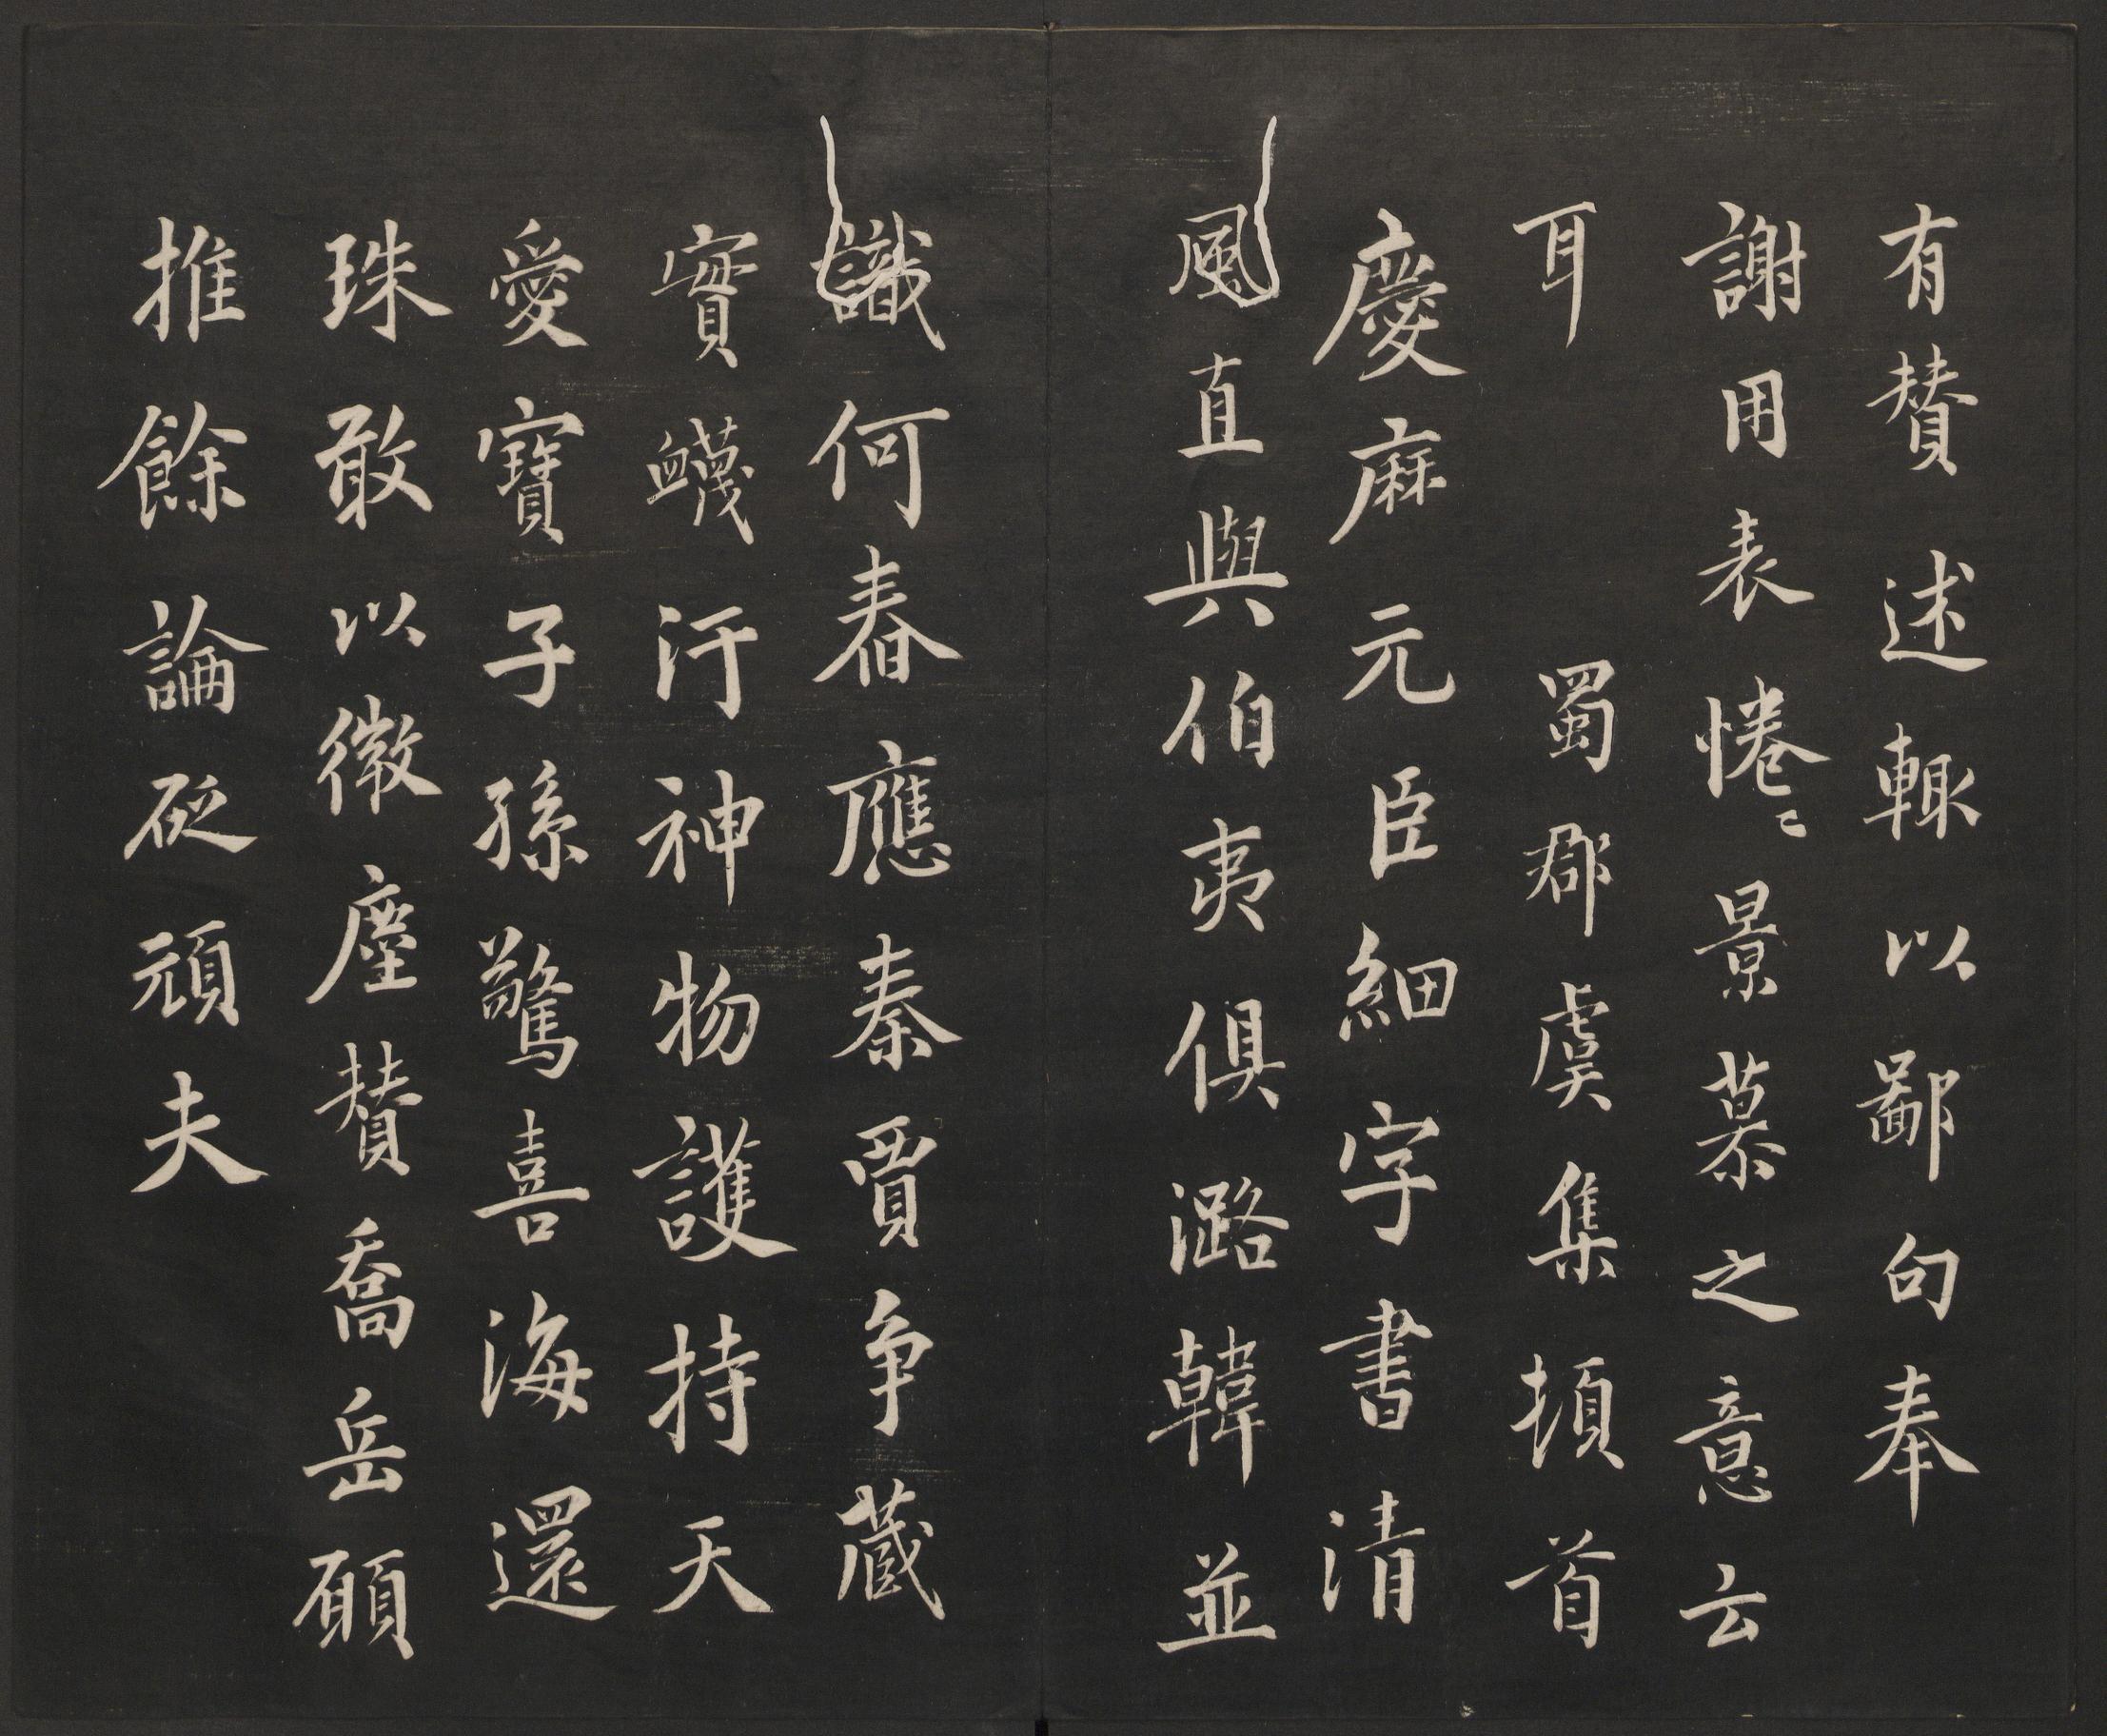 有贊述輙以鄙句奉
謝用表惓〻景慕之意云
耳
蜀郡虞集頓首
慶麻元臣細字書清
風直與伯夷俱潞韓並
識何春應秦賈争蔵
實衊汙神物護持天
愛寳子孫驚喜海還
珠敢以微塵賛喬岳願
推餘論砭頑夫